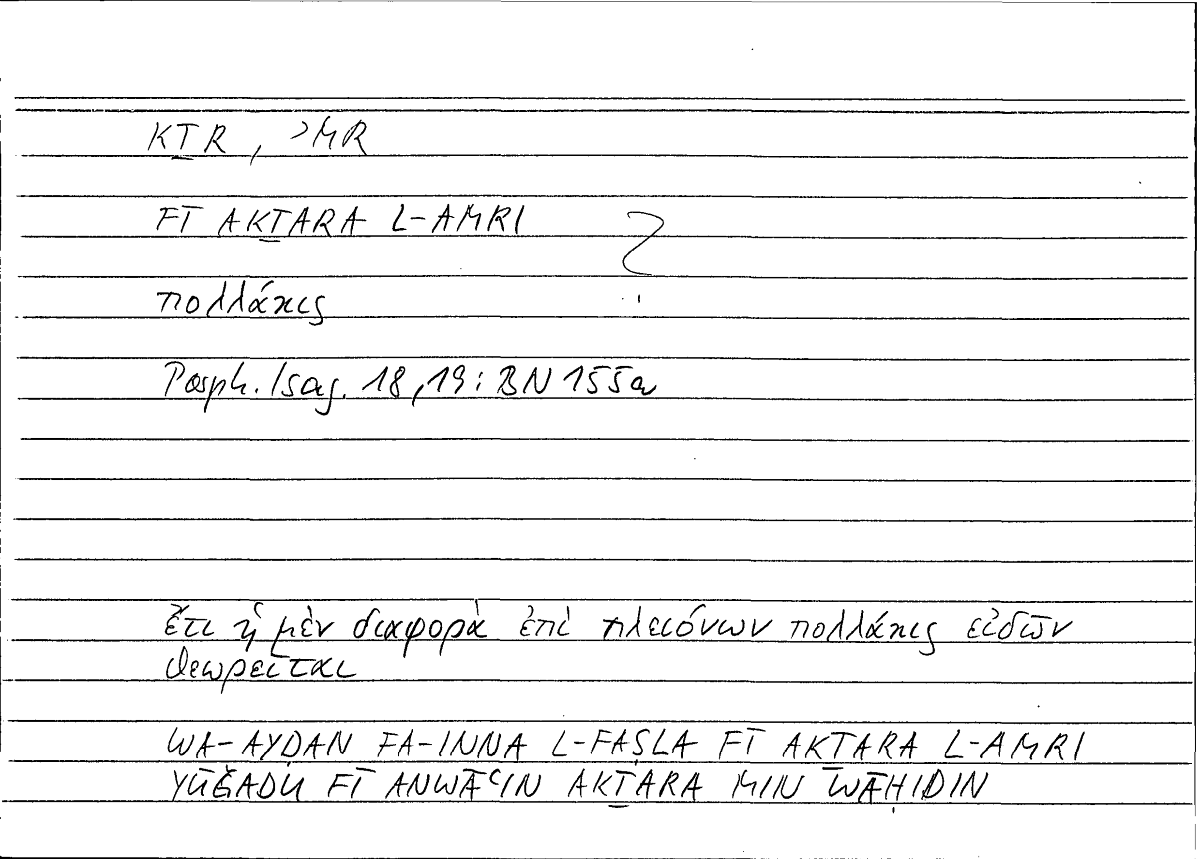 KṮR, ʾMR
FĪ AKṮARA L-AMRI ?
πολλάκις
Porph. Isag. 18,19: BN 155a
ἔτι ἡ μὲν διαφορὰ ἐπὶ πλειόνων πολλάκις εἰδῶν
θεωρεῖται
WA-AYḌAN FA-INNA L-FAṢLA FĪ AKṮARA L-AMRI
YŪǦADU FĪ ANWĀʿIN AKṮARA MIN WĀḤIDIN